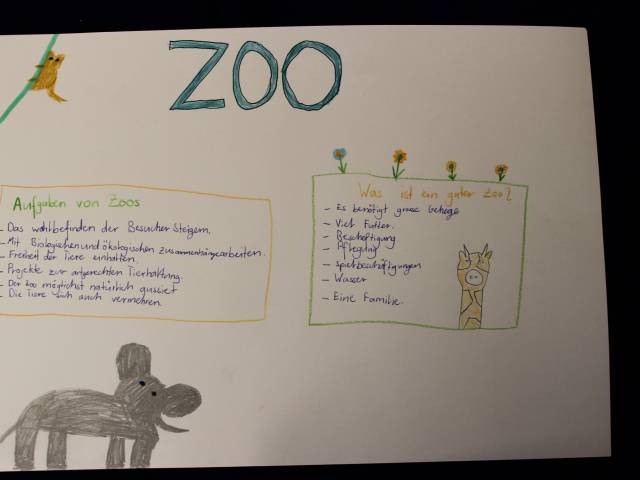 ZOO
Aufgaben von Zoos
- Das wohlbefinden der Besucher Steigern.
- Mit Biologischen und ökologischen zusammenhänge arbeitern.
- Freiheit der Tiere einhalten.
- Projekte zur artgerechten Tierhaltung.
- Der Zoo möglichst natürlich aussiet
- Die Tiere sich auch vermehren.
Was ist ein guter Zoo?
- Es benötigt grosse Gehege
- Viel Futter.
- Beschäftigung
- Pflegung
- spielbeschäftigungen
- Wasser
- Eine Familie.